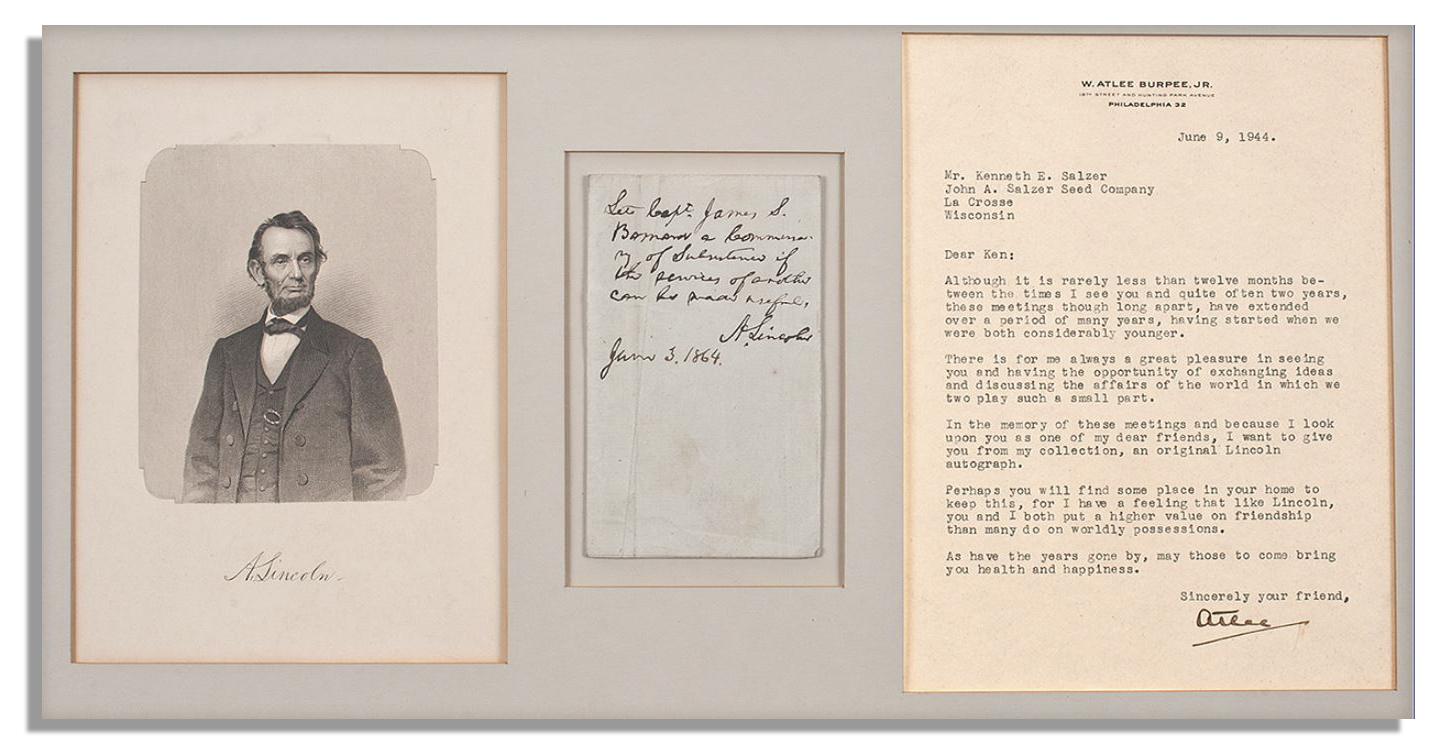 A. Lincoln
Let Capt. James S.
Barnard a Commissa-
ry of Subsistence if
the services of another
can be made useful,
A. Lincoln
June 3. 1864.
W. ATLEE BURPEE, JR.
18TH STREET AND HUNTING PARK AVENUE
PHILADELPHIA 32
June 9, 1944.
Mr. Kenneth E. Salzer
John A. Salzer Seed Company
La Crosse
Wisconsin
Dear Ken:
Although it is rarely less than twelve months be-
tween the times I see you and quite often two years,
these meetings though long apart, have extended
over a period of many years, having started when we
were both considerably younger.
There is for me always a great pleasure in seeing
you and having the opportunity of exchanging ideas
and discussing the affairs of the world in which we
two play such a small part.
In the memory of these meetings and because I look
upon you as one of my dear friends, I want to give
you from my collection, an original Lincoln
autograph.
Perhaps you will find some place in your home to
keep this, for I have a feeling that like Lincoln,
you and I both put a higher value on friendship
than many do on worldly possessions.
As have the years gone by, may those to come bring
you health and happiness.
Sincerely your friend,
Atlee